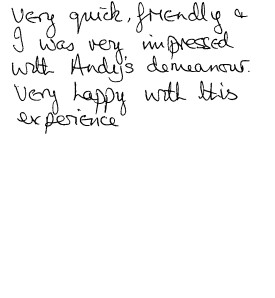 Very quick, friendly &
I was very impressed
with Andy's demeanour.
Very happy with this
experience